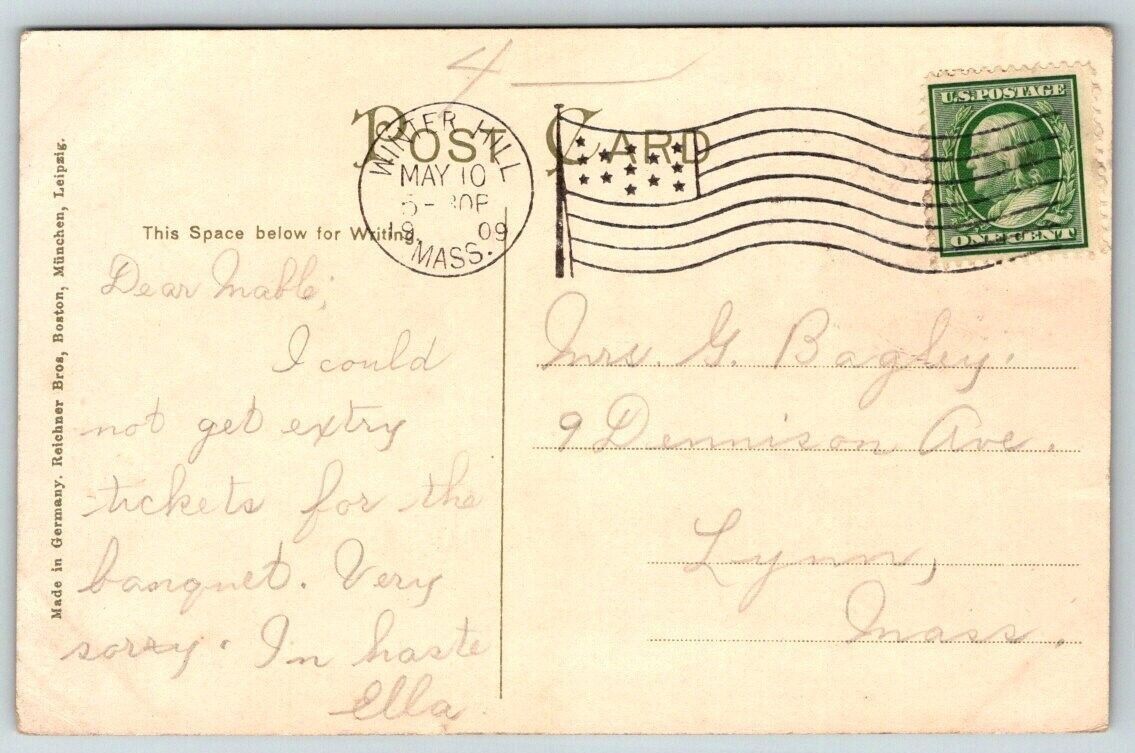 4
POST CARD
WINTER HILL
MAY 10
5-30P
1909
MASS.
U.S. POSTAGE
ONE CENT
This Space below for Writing.
Made in Germany. Reichner Bros, Boston, München, Leipzig.
Dear Mable;
I could
not get extry
tickets for the
banquet. Very
sorry. In haste
Ella.
Mrs. G. Bagley.
9 Dennison Ave.
Lynn,
Mass.